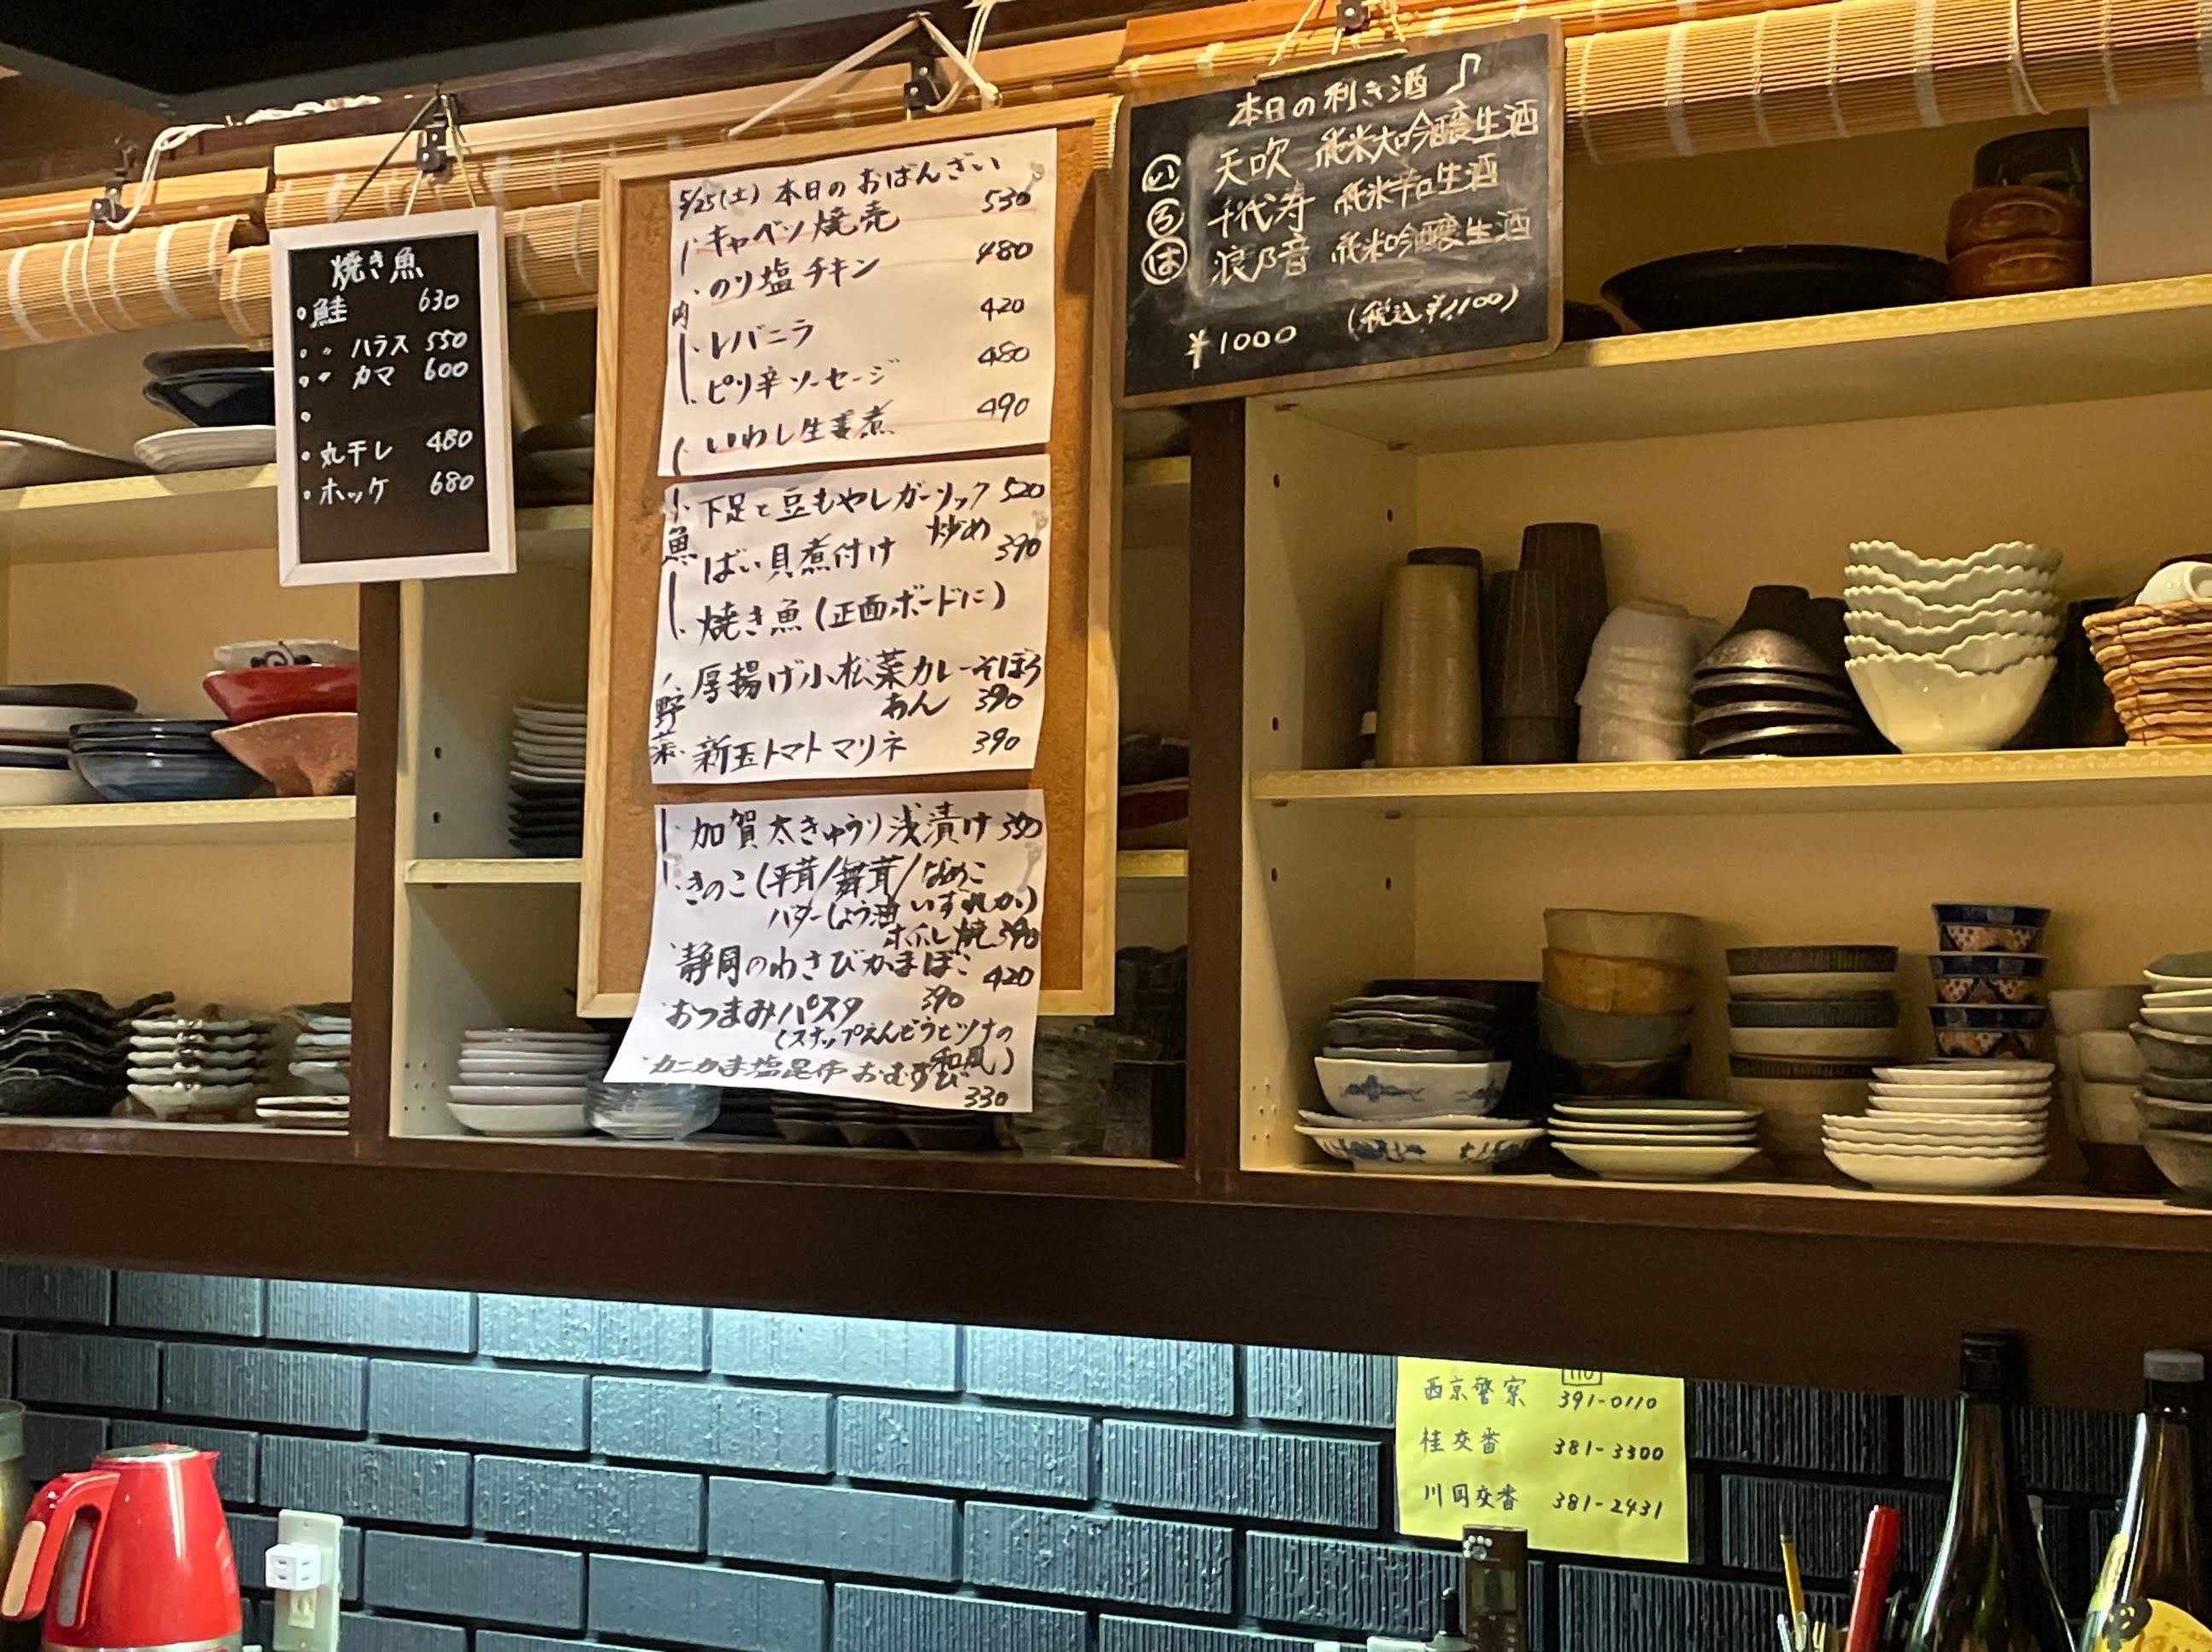 焼き魚
・鮭 630
・〃 ハラス 550
・〃 カマ 600
・
・丸干し 480
・ホッケ 680
5/25(土) 本日の おばんざい
・キャベツ焼売 530
・のり塩チキン 480
肉
・レバニラ 420
・ピリ辛ソーセージ 480
・いわし生姜煮 490
・下足と豆もやしガーリック 520
炒め
魚
ばい貝煮付け 390
・焼き魚(正面ボードに)
・厚揚げ小松菜カレーそぼろ
あん 390
野菜
・新玉トマトマリネ 390
・加賀太きゅうり浅漬け 390
・きのこ(平茸/舞茸/なめこ
いずれか)
バターしょう油
ホイル焼 390
・静岡のわさびかまぼこ 420
・おつまみパスタ 390
(スナップえんどうとツナの
和風)
・カニかま塩昆布おむすび
330
本日の利き酒♪
い 天吹 純米大吟醸生酒
ろ 千代寿 純米辛口生酒
は 浪乃音 純米吟醸生酒
¥1000 (税込¥1100)
110
西京警察 391-0110
桂交番 381-3300
川岡交番 381-2431